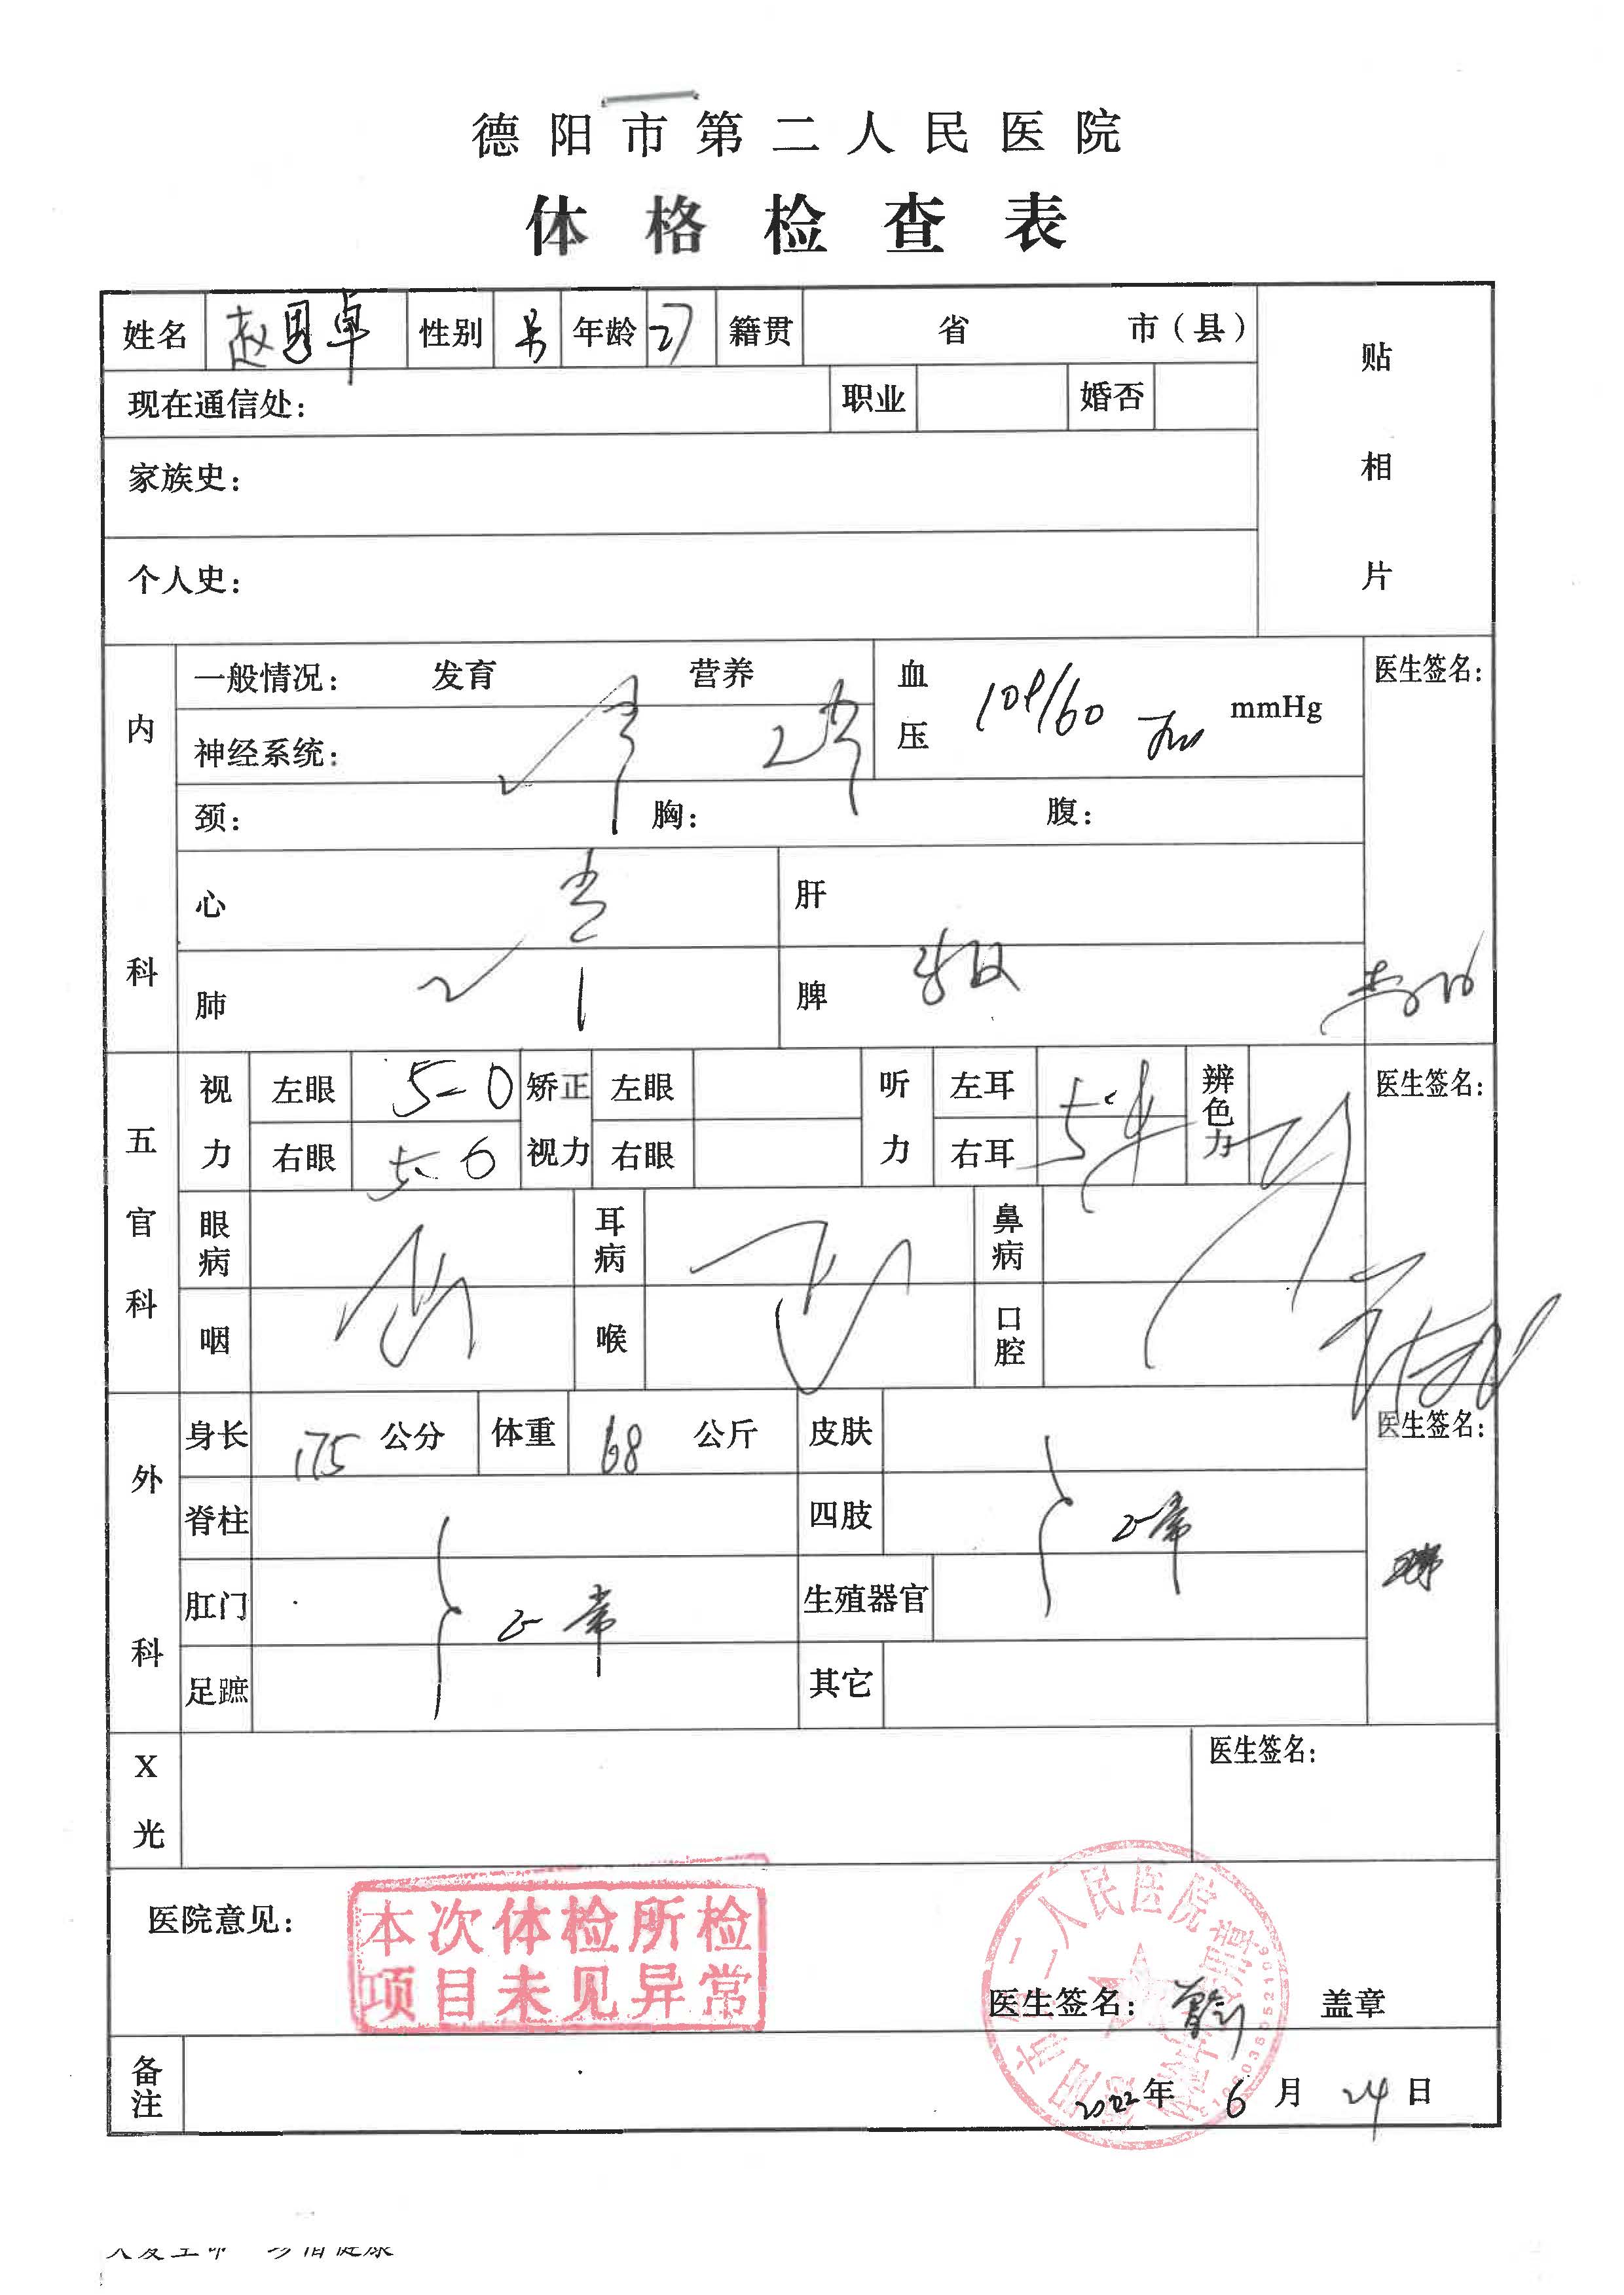 德阳市第二人民医院
体格检查表
姓名 赵思卓 性别 男 年龄 27 籍贯 省 市（县）
贴相片
现在通信处： 职业 婚否
家族史：
个人史：
内科
一般情况： 发育 营养
血压 mmHg
医生签名：
神经系统：
颈： 胸： 腹：
心 肝
肺 脾
五官科
视力 左眼 5-0 矫正视力 左眼 听力 左耳 辨色力
医生签名：
右眼 5-0 右眼 右耳
眼病 耳病 鼻病
咽 喉 口腔
外科
身长 175 公分 体重 68 公斤 皮肤
医生签名：
脊柱 四肢 正常
肛门 正常 生殖器官
足蹠 其它
X光
医生签名：
医院意见： 本次体检所检
项目未见异常
市第二人民医院
医生签名： 盖章
备注
2022年 6月 24日